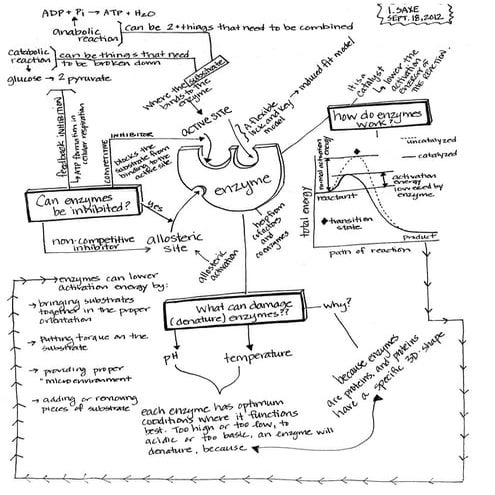 ADP + Pi → ATP + H2O
anabolic
reaction
can be 2+ things that need to be combined
catabolic
reaction
can be things that need
to be broken down
glucose → 2 pyruvate
I. SAXE
SEPT. 18, 2012
where the substrate
binds to the
enzyme
ACTIVE SITE
A flexible
lock and key
model
induced fit model
it is a
catalyst
lower the
activation
energy of
the reaction.
how do enzymes
work?
uncatalyzed
catalyzed
normal activation
energy
activation
energy
lowered by
enzyme
reactant
transition
state
product
total energy
path of reaction
feedback INHIBITION
ATP formation in
cellular respiration
COMPETITIVE
INHIBITOR
blocks the
substrate from
binding to the
active site
enzyme
Can enzymes
be inhibited?
yes
non-competitive
inhibitor
allosteric
site
allosteric
activation
help from
cofactors
and
coenzymes
enzymes can lower
activation energy by:
bringing substrates
together in the proper
orientation
Putting torque on the
substrate
providing proper
"microenvironment
adding or removing
pieces of substrate
What can damage
(denature) enzymes??
why?
pH
temperature
because enzymes
are proteins, and proteins
have a specific 3D shape
each enzyme has optimum
conditions where it functions
best. Too high or too low, to
acidic or too basic, an enzyme will
denature, because